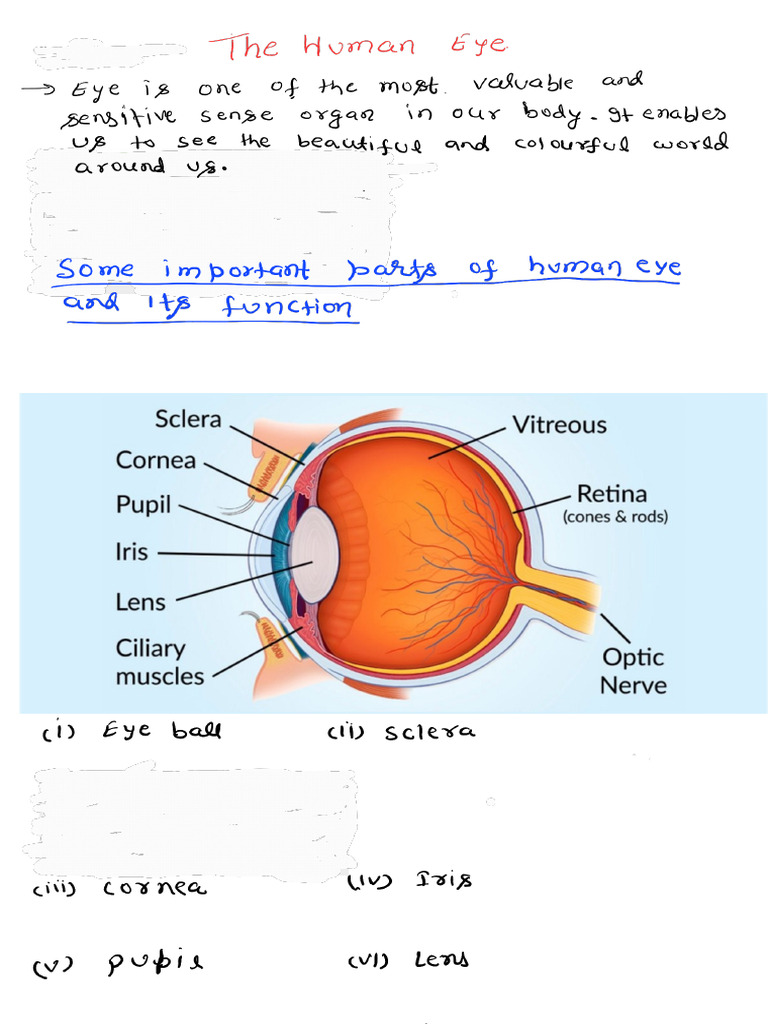 The Human Eye
→ Eye is one of the most valuable and
sensitive sense organ in our body. It enables
us to see the beautiful and colourful world
around us.
Some important parts of human eye
and its function
Sclera
Cornea
Pupil
Iris
Lens
Ciliary
muscles
Vitreous
Retina
(cones & rods)
Optic
Nerve
(i) Eye ball (ii) Sclera
(iii) cornea (iv) Iris
(v) pupil (vi) Lens